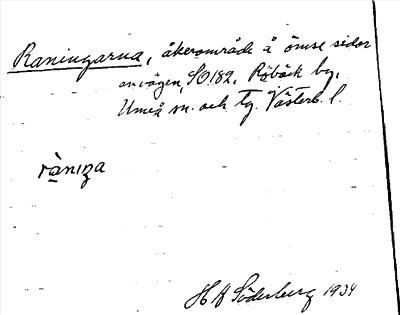 Raningarna, åkerområde å ömse sidor
om vägen, SO.182. Röbäck by,
Umeå sn. och tg. Västerb. l.
ràniza
H A Söderberg 1934